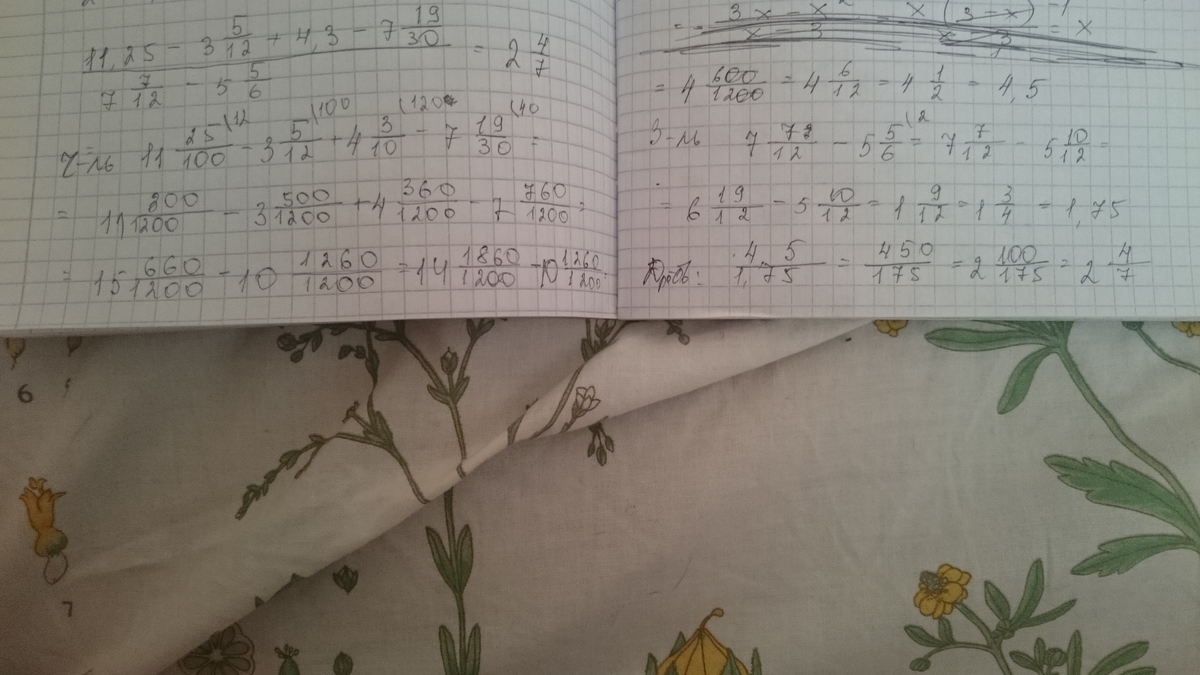 11,25 - 3 5/12 + 4,3 - 7 19/30
7 7/12 - 5 5/6
= 2 4/7
Ч-ль 11 25/100 (12 - 3 5/12 (100 + 4 3/10 (120 - 7 19/30 (40 =
= 11 200/1200 - 3 500/1200 + 4 360/1200 - 7 760/1200 =
= 15 660/1200 - 10 1260/1200 = 14 1860/1200 - 10 1260/1200 =
= 3x - x² / x - 3 = x (3 - x) -1 = x
= 4 600/1200 = 4 6/12 = 4 1/2 = 4,5
З-ль 7 7/12 - 5 5/6 (2 = 7 7/12 - 5 10/12 =
= 6 19/12 - 5 10/12 = 1 9/12 = 1 3/4 = 1,75
Дробь: 4,5/1,75 = 450/175 = 2 100/175 = 2 4/7
6
7